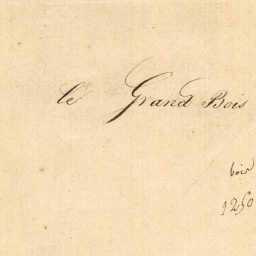 le Grand Bois
bois
1250